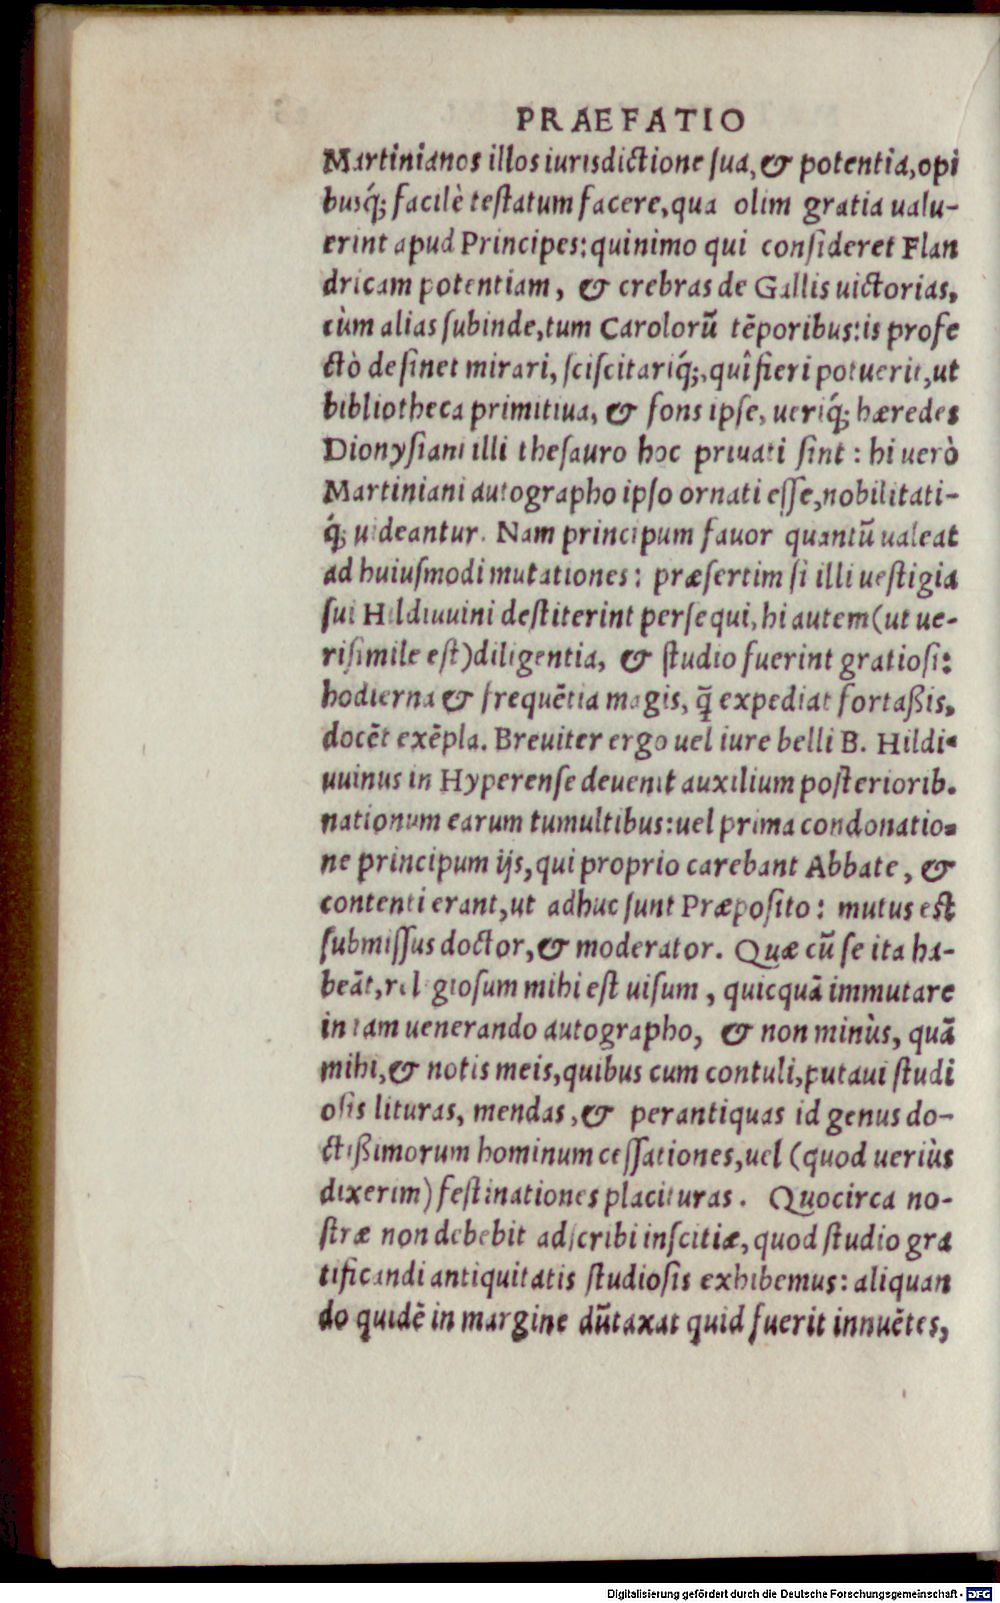 PRAEFATIO
Martinianos illos iurisdictione sua, & potentia, opi
busq́; facilè testatum facere, qua olim gratia ualu-
erint apud Principes: quinimo qui consideret Flan
dricam potentiam, & crebras de Gallis uictorias,
cùm alias subinde, tum Carolorū tēporibus: is profe
ctò desinet mirari, sciscitariq́;, quî fieri potuerit, ut
bibliotheca primitiua, & fons ipse, ueriq́; hæredes
Dionysiani illi thesauro hoc priuati sint: hi uerò
Martiniani autographo ipso ornati esse, nobilitati-
q́; uideantur. Nam principum fauor quantū ualeat
ad huiusmodi mutationes: præsertim si illi uestigia
sui Hilduuini destiterint persequi, hi autem (ut ue-
risimile est) diligentia, & studio fuerint gratiosi:
hodierna & frequētia magis, q̄ expediat fortaßis,
docēt exēpla. Breuiter ergo uel iure belli B. Hildi-
uuinus in Hyperense deuenit auxilium posteriorib.
nationum earum tumultibus: uel prima condonatio-
ne principum ijs, qui proprio carebant Abbate, &
contenti erant, ut adhuc sunt Præposito: mutus est
submissus doctor, & moderator. Quæ cū se ita ha-
beāt, religiosum mihi est uisum, quicquā immutare
in tam uenerando autographo, & non minùs, quā
mihi, & notis meis, quibus cum contuli, putaui studi
osis lituras, mendas, & perantiquas id genus do-
ctißimorum hominum cessationes, uel (quod ueriùs
dixerim) festinationes placituras. Quocirca no-
stræ non debebit adscribi inscitiæ, quod studio gra
tificandi antiquitatis studiosis exhibemus: aliquan
do quidē in margine dūtaxat quid fuerit innuētes,
Digitalisierung gefördert durch die Deutsche Forschungsgemeinschaft - DFG